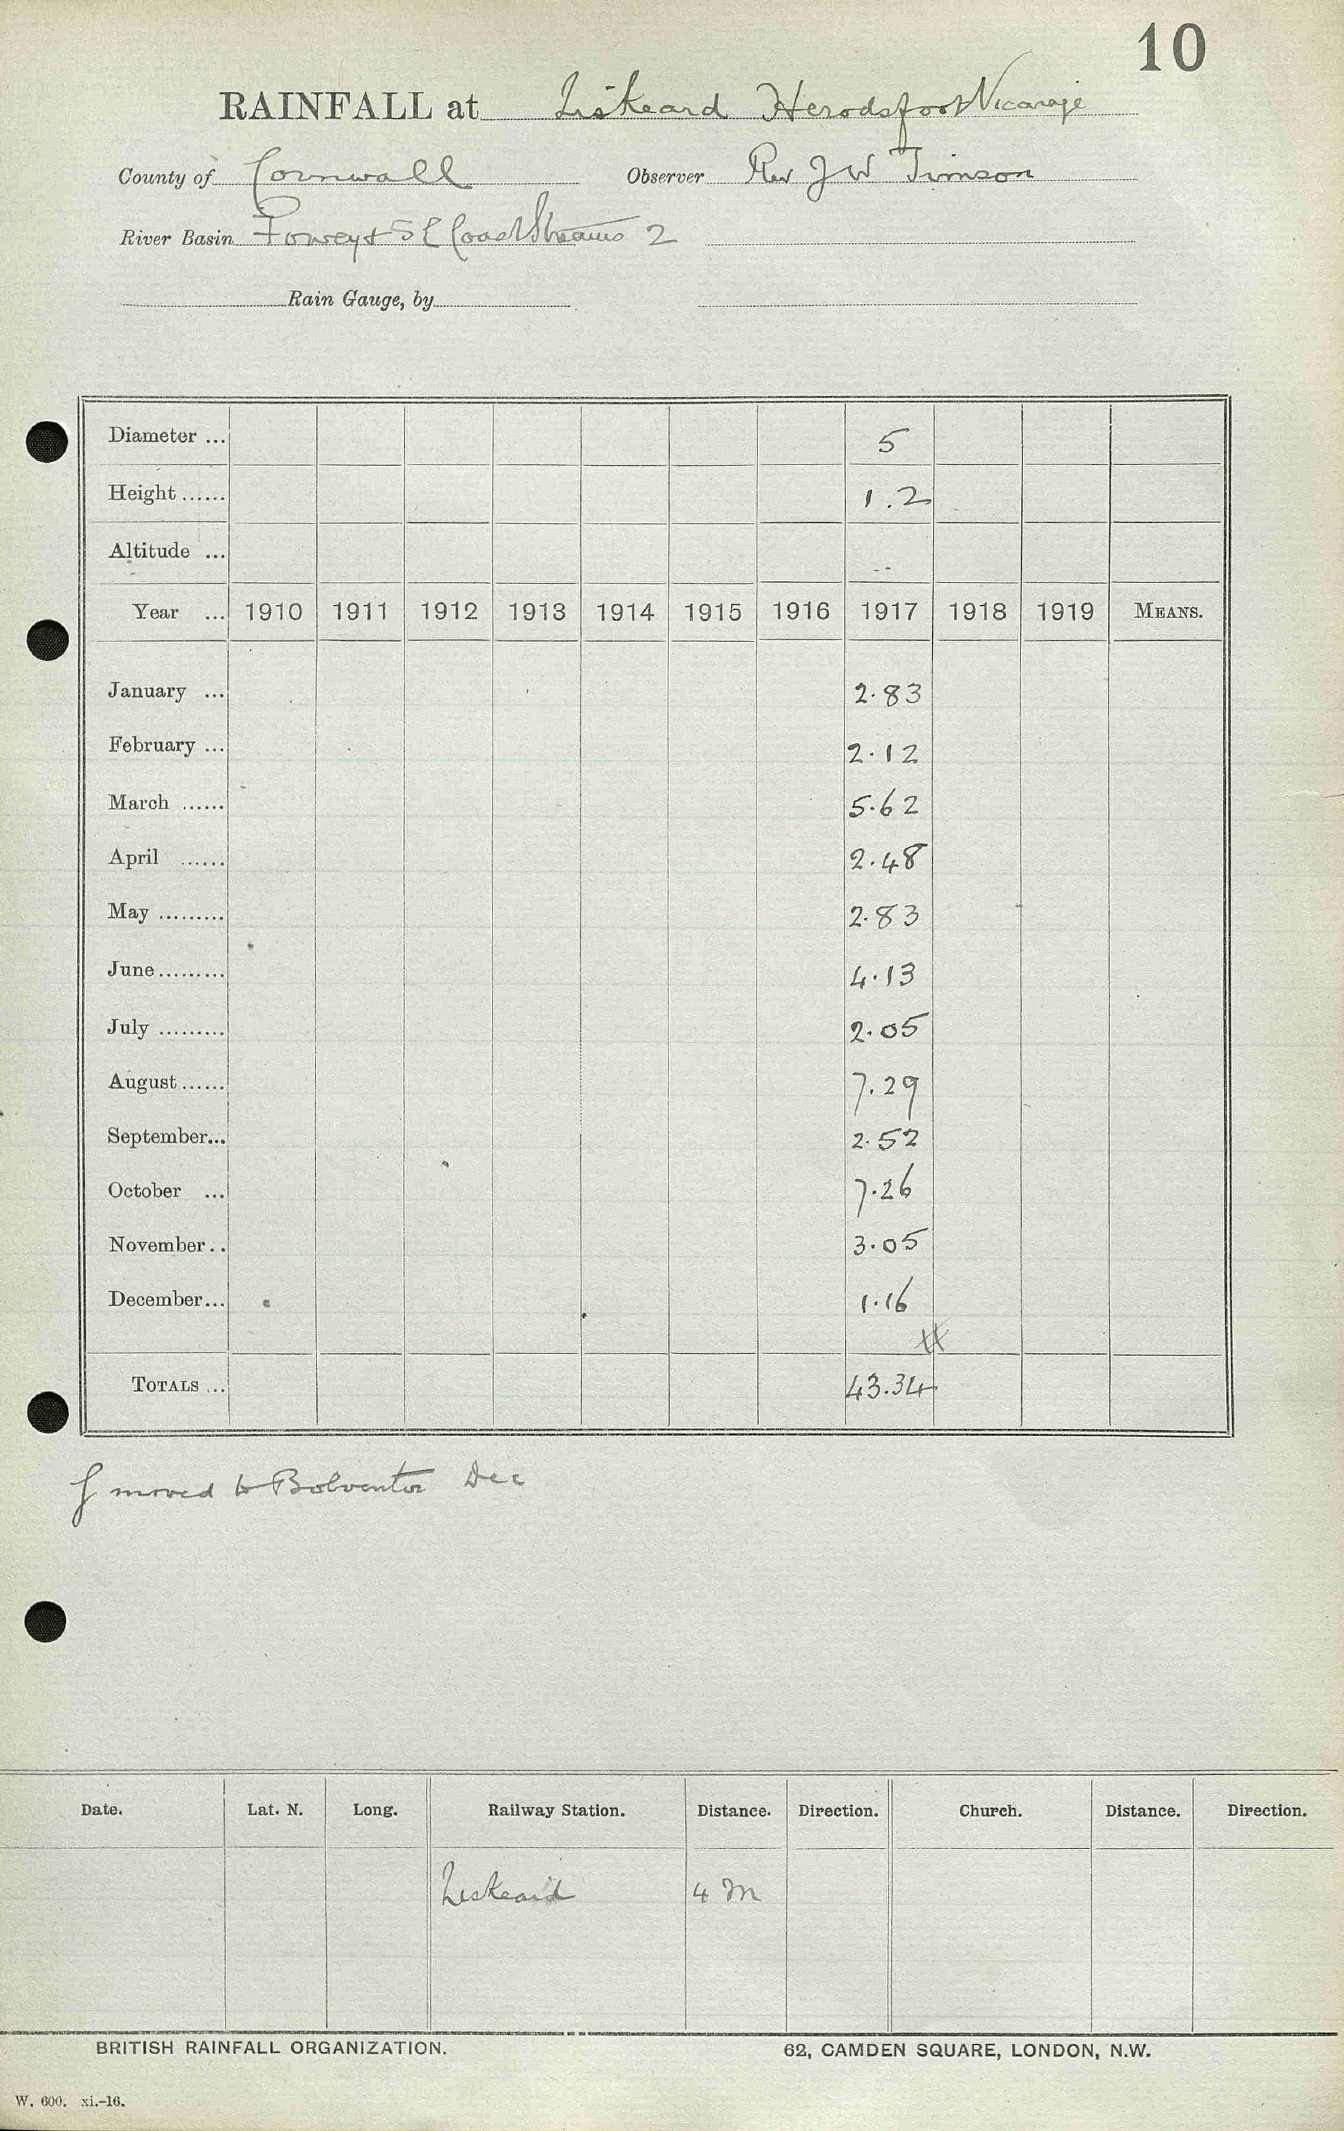 10
RAINFALL at Liskeard Herodsfoot Vicarage
County of Cornwall Observer Rev J W Timson
River Basin Fowey & S E Coast Streams 2
Rain Gauge, by
Diameter ... 5
Height ...... 1.2
Altitude ... --
Year ... 1910 1911 1912 1913 1914 1915 1916 1917 1918 1919 MEANS.
January ... 2.83
February ... 2.12
March ...... 5.62
April ...... 2.48
May ......... 2.83
June ......... 4.13
July ......... 2.05
August ...... 7.29
September... 2.52
October ... 7.26
November .. 3.05
December... 1.16
TOTALS ... 43.34
G moved to Bolventor Dec
Date. Lat. N. Long. Railway Station. Distance. Direction. Church. Distance. Direction.
Liskeard 4 M
BRITISH RAINFALL ORGANIZATION. 62, CAMDEN SQUARE, LONDON, N.W.
W. 600. xi.-16.